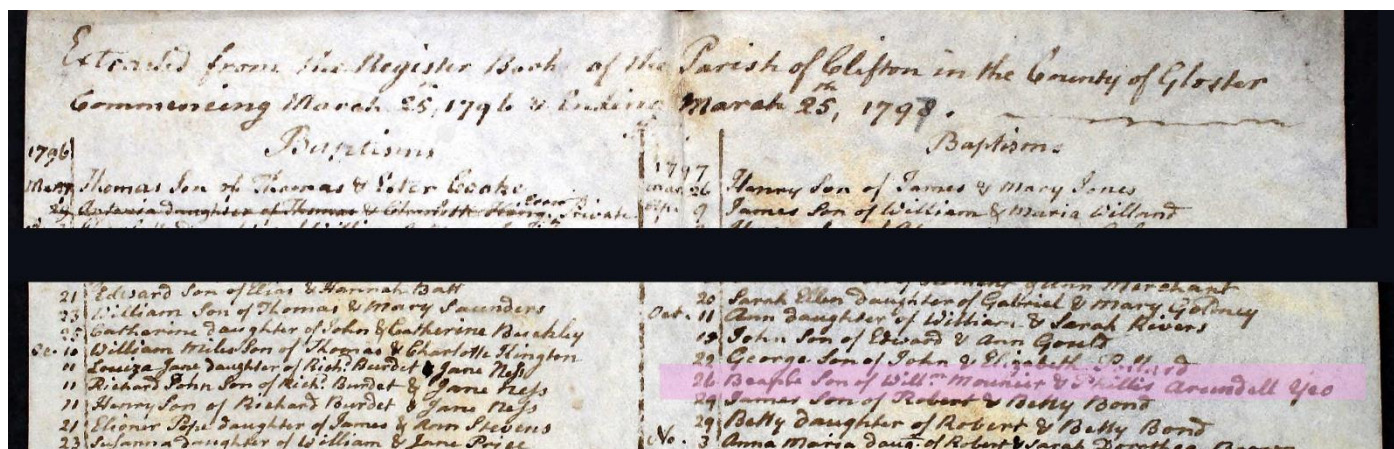 Extracted from the Register Book of the Parish of Clifton in the County of Gloster
Commencing March 25, 1796 & Ending March 25th, 1798.
1796
Baptisms
Thomas Son of Thomas & Ester Cooke
daughter of Thomas & Charlotte Private
21 Edward Son of Elias & Hannah Batt
23 William Son of Thomas & Mary Saunders
25 Catherine daughter of John & Catherine Buckley
10 William Miles Son of Thomas & Charlotte Kington
11 Louiza Jane daughter of Richd. Burdet & Jane Ness
11 Richard John Son of Richd. Burdet & Jane Ness
11 Henry Son of Richard Burdet & Jane Ness
21 Elioner Pope daughter of James & Ann Stevens
23 Susanna daughter of William & Jane Price
1797
Baptisms
Mar. 26 Henry Son of James & Mary Jones
9 James Son of William & Maria Willand
Ann Merchant
20 Sarah Ellen daughter of Gabriel & Mary Goldney
Oct. 11 Ann daughter of William & Sarah Rivers
19 John Son of Edward & Ann Gould
22 George Son of John & Elizabeth Pollard
26 Beaple Son of Willm. & Phillis Arundell Yeo
29 James Son of Robert & Betty Bond
29 Betty daughter of Robert & Betty Bond
No. 3 Anna Maria daug. of Robert & Sarah Dorothea